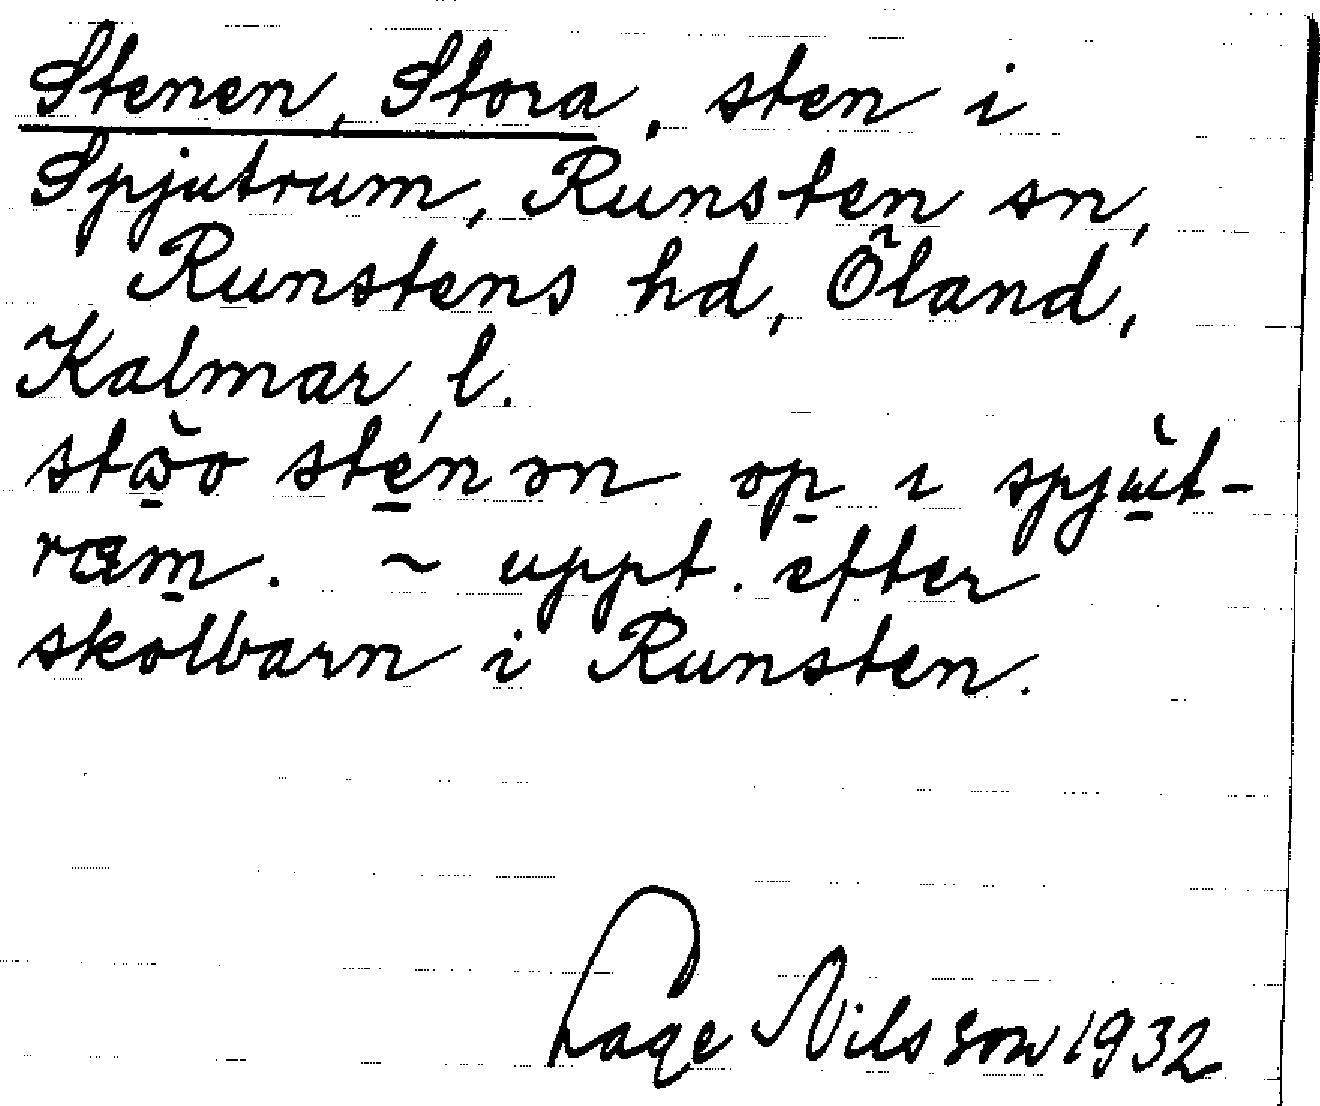 Stenen, Stora, sten i
Spjutrum, Runsten sn,
Runstens hd, Öland,
Kalmar l.
op i
~ uppt. efter
skolbarn i Runsten.
Lage Nilsson 1932